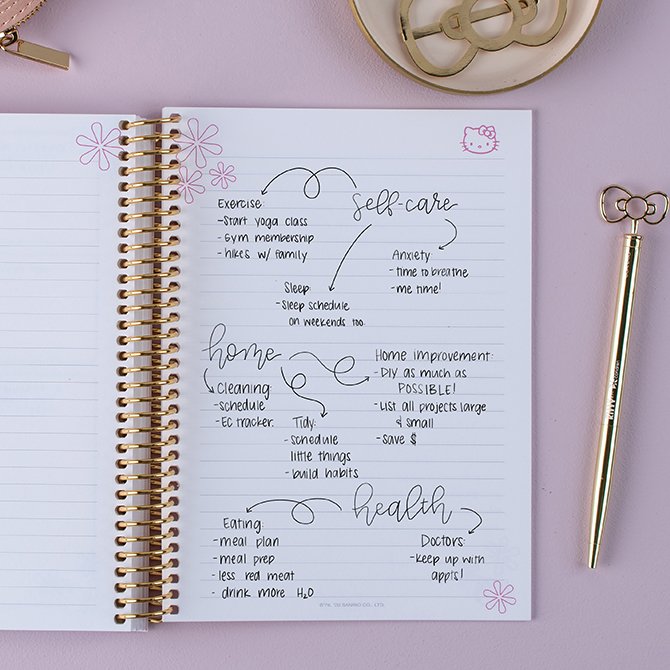 self-care
Exercise:
-Start yoga class
-Gym membership
-hikes w/ family
Anxiety:
-time to breathe
-me time!
Sleep:
-Sleep schedule
on weekends too.
home
Cleaning:
-schedule
-EC tracker.
Tidy:
-schedule
little things
-build habits
Home improvement:
-DIY as much as
POSSIBLE!
-List all projects large
& small
-save $
health
Eating:
-meal plan
-meal prep
-less red meat
-drink more H₂O
Doctors:
-keep up with
appts!
SANRIO CO., LTD.